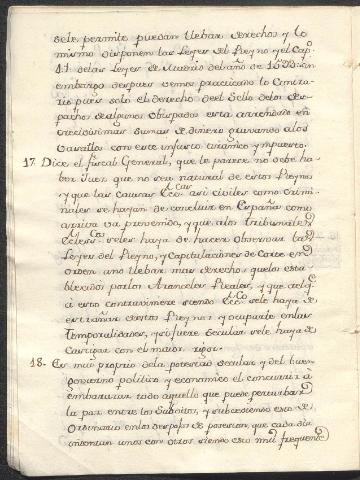 se le permite puedan llebar derechos y lo
mismo disponen las Leyes del Reyno y el Cap.
47 delas Leyes de Madrid del año de 15 sin
embargo despues vemos practicado lo Contra-
rio pues solo el derecho del Sello delos des-
pachos de algunos obispados esta arrendado en
crecidisimas sumas de dinero gravando alos
Vasallos con este injusto tiranico ympuesto.
17. Dice el fiscal General, que le parece no debe ha-
ber Juez que no sea natural de estos Reynos
y que las causas Ecc.cas asi civiles como Crimi-
nales se hayan de concluir en España como
arriva va prevenido, y que alos tribunales
Ecc.cos seles haya de hacer observar las
Leyes del Reyno, y Capitulaciones de Cortes en
orden ano llebar mas derechos quelos esta-
blecidos porlos Aranceles Reales, y que alq.e
a esto contraviniere siendo Ecc.co sele haya de
estrañar destos Reynos y ocuparle enlas
Temporalidades, y si fuere Secular sele haya de
Castigar con el maior rigor.
18. Es mui proprio dela potestad Secular y del buen
govierno politico y economico el concurrir a
embarazar todo aquello que puede perturbar
la paz entre los Subditos, y subcediendo esto de
Ordinario enlos despojos de posesion, que cada dia
intentan unos con otros siendo esto mui frequente